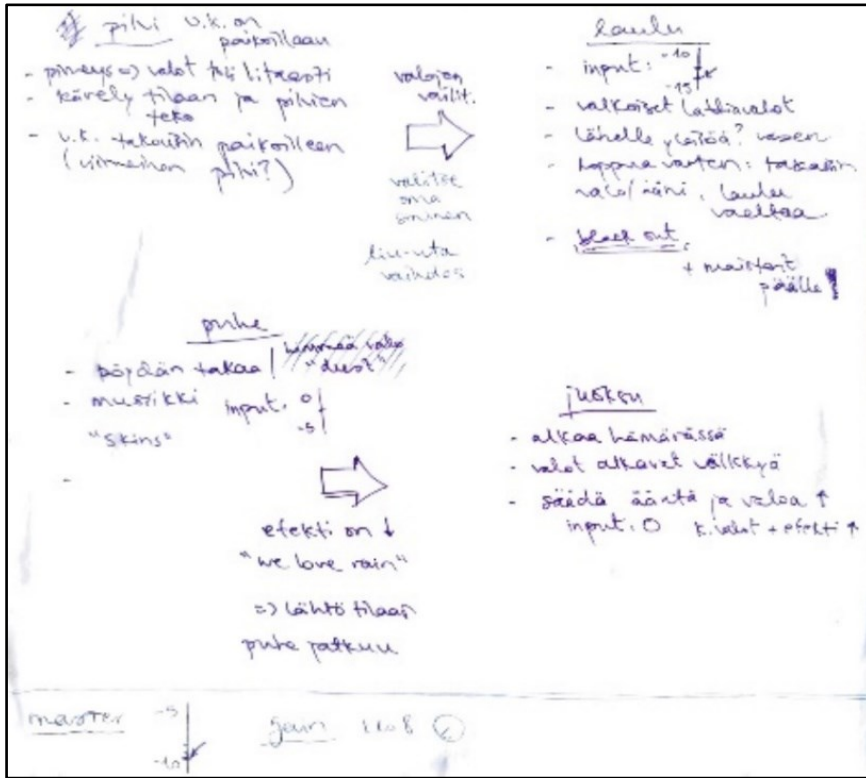 pilvi v.k. on
paikoillaan
- pimeys => valot
- kävely tilaan ja pilvien
teko
- v.k. takaisin paikoilleen
(viimeinen pilvi?)
valojen
välit.
valitse
oma
liu-uta
vaihdos
laulu
- input: -10
-15
- valkoiset lattiavalot
- lähelle yleisöä? vasen
- loppua varten: takaisin
valo/ääni, laulu
vaeltaa
- black out
+ maisterit
päälle!
puhe
- pöydän takaa! "dust"
- musiikki input: 0
"skins" -5
-
efekti on ↓
"we love rain"
=> lähtö tilaan
puhe jatkuu
juoksu
- alkaa hämärässä
- valot alkavat välkkyä
- säädä ääntä ja valoa ↑
input: 0 k.valot + efekti ↑
master -5
-10
gain